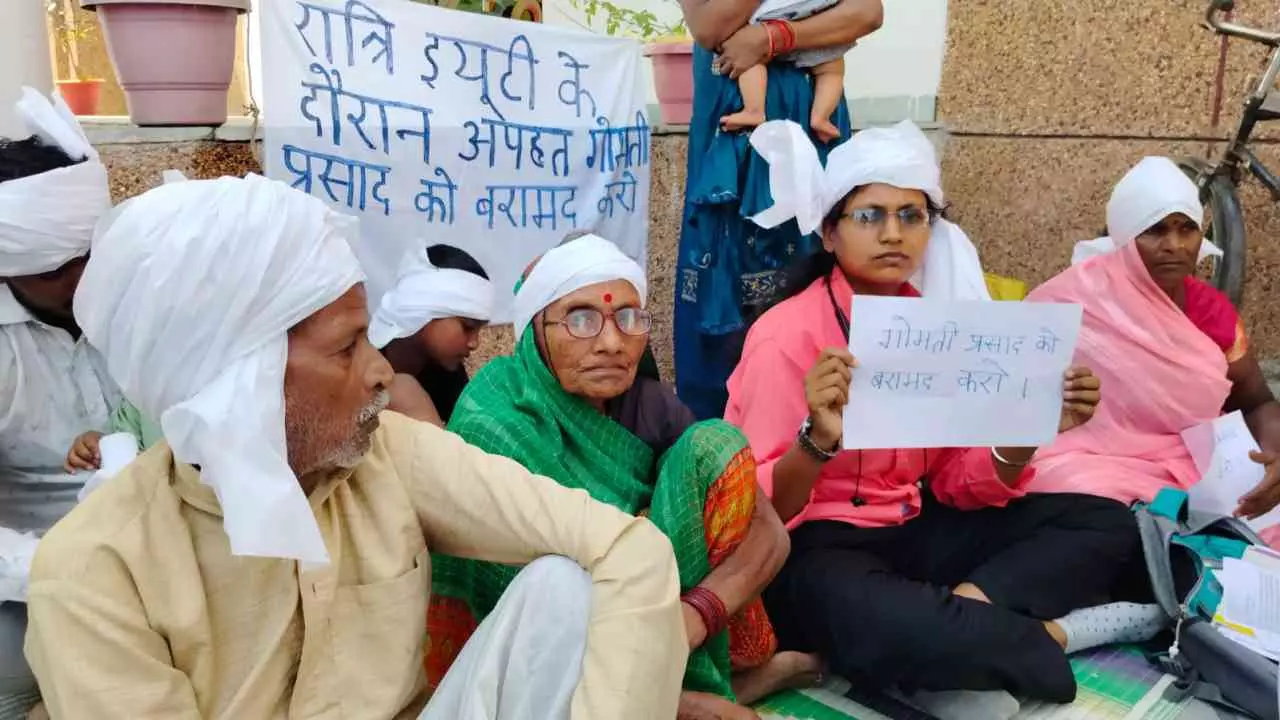 रात्रि ड्यूटी के
दौरान अपहृत गोमती
प्रसाद को बरामद करो
गोमती प्रसाद को
बरामद करो।